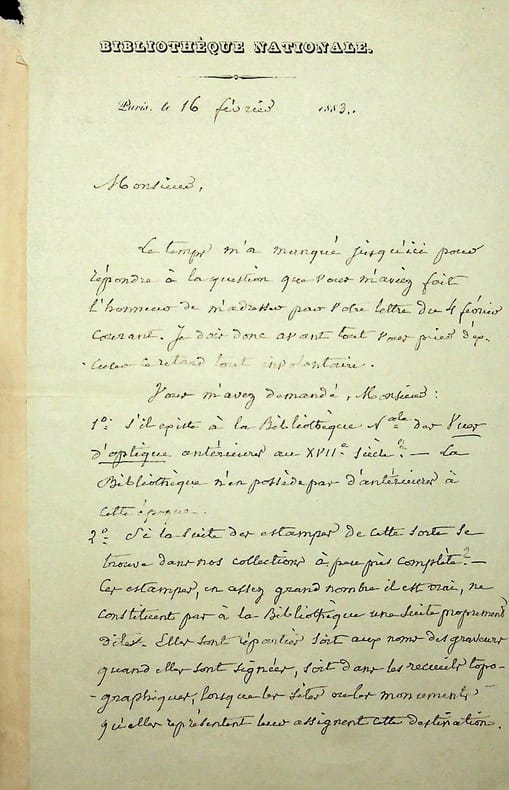 BIBLIOTHÈQUE NATIONALE.
Paris, le 16 février 1883.
Monsieur,
Le temps m'a manqué jusqu'ici pour
répondre à la question que vous m'aviez fait
l'honneur de m'adresser par votre lettre du 4 février
courant. Je dois donc avant tout vous prier d'ex-
-cuser ce retard tout involontaire.
Vous m'avez demandé, Monsieur :
1º: s'il existe à la Bibliothèque Nale des Vues
d'optique antérieures au XVIIe siècle ? — La
Bibliothèque n'en possède pas d'antérieures à
cette époque.
2º: Si la suite des estampes de cette sorte se
trouve dans nos collections à peu près complète ? —
Ces estampes, en assez grand nombre il est vrai, ne
constituent pas à la Bibliothèque une suite proprement
dite. Elles sont réparties soit aux noms des graveurs
quand elles sont signées, soit dans les recueils topo-
-graphiques, lorsque les sites ou les monuments
qu'elles représentent leur assignent cette destination.